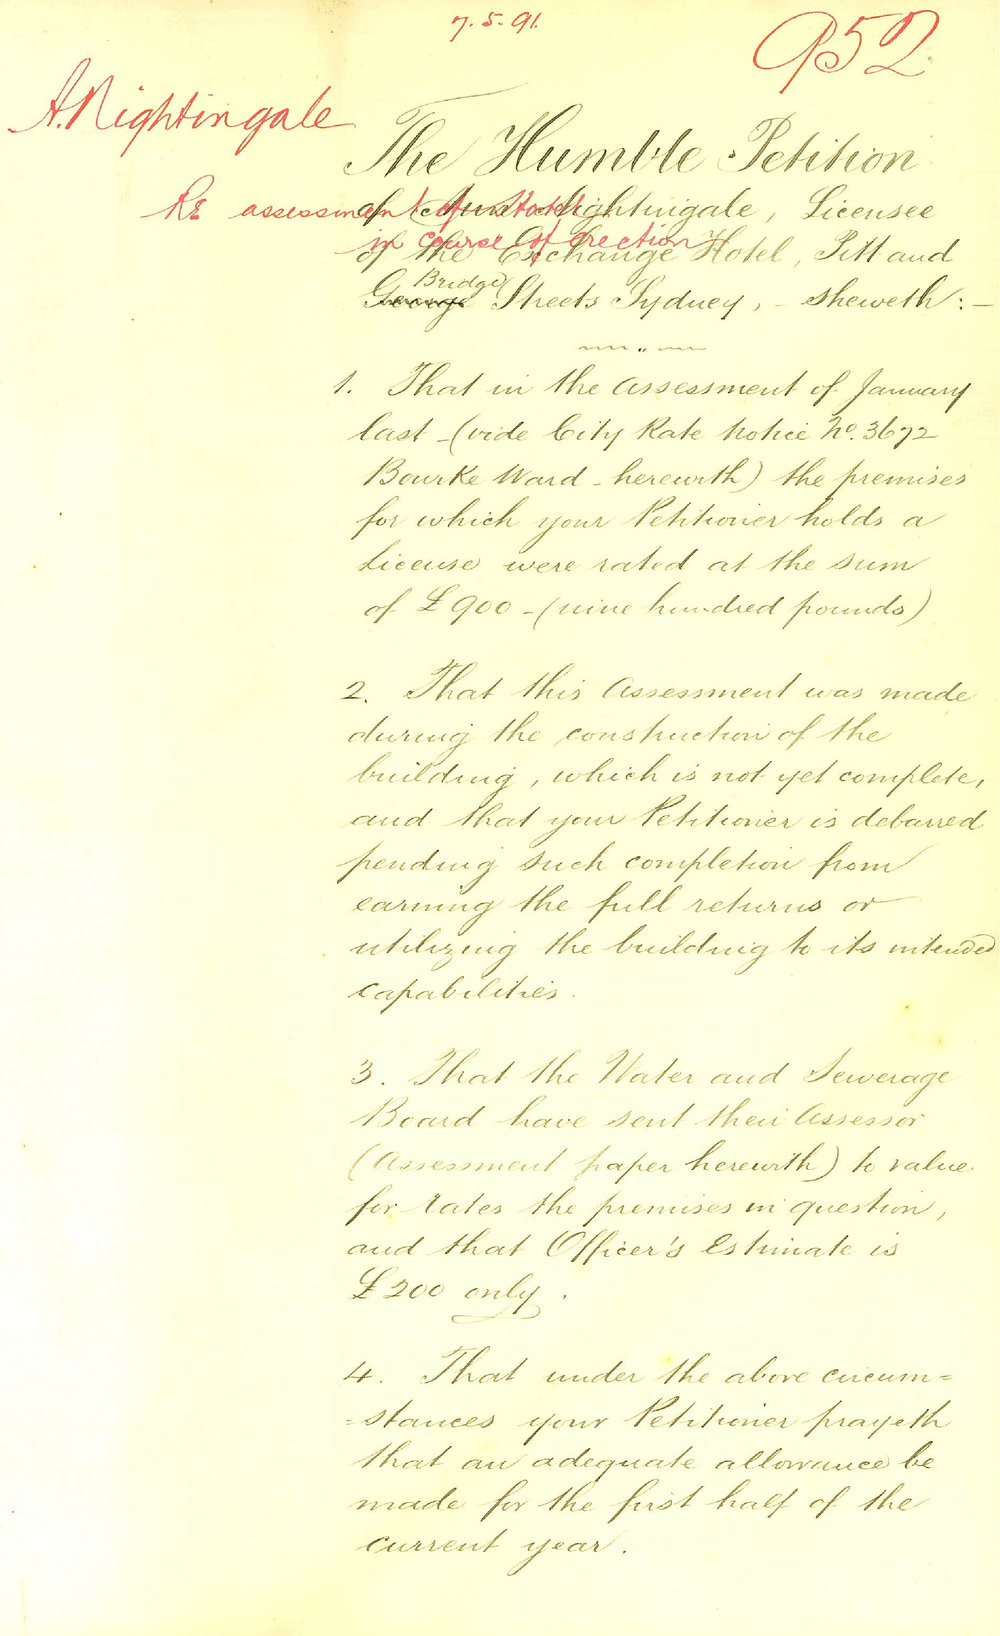 7.5.91.
952
A. Nightingale
The Humble Petition
Re assessment of Hotel
in course of erection
of Nightingale, Licensee
of the Exchange Hotel, Pitt and
Bridge
George Streets Sydney, - sheweth: -
1. That in the Assessment of January
last - (vide City Rate Notice No. 3672
Bourke Ward - herewith) the premises
for which your Petitioner holds a
license were rated at the sum
of £900 - (nine hundred pounds)
2. That this Assessment was made
during the construction of the
building, which is not yet complete,
and that your Petitioner is debarred
pending such completion from
earning the full returns or
utilizing the building to its intended
capabilities.
3. That the Water and Sewerage
Board have sent their Assessor
(Assessment paper herewith) to value
for rates the premises in question,
and that Officer's Estimate is
£200 only.
4. That under the above circum=
=stances your Petitioner prayeth
that an adequate allowance be
made for the first half of the
current year.